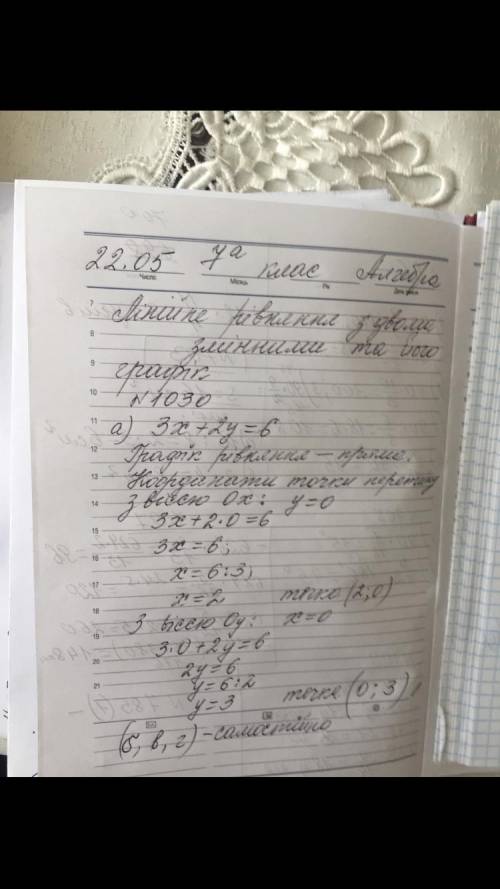 22.05 7а клас Алгебра
Число Місяць Рік День тижня
7 Лінійне рівняння з двома
8 змінними та його
9 графік
10 №1030
11 а) 3x+2y=6
12 Графік рівняння – пряма.
13 Координати точки перетину
14 з віссю Ox: y=0
15 3x+2·0=6
16 3x=6;
x=6:3;
x=2 точка (2;0)
З віссю Oy: x=0
19 3·0+2y=6
20 2y=6
21 y=6:2
y=3 точка (0;3)
(б, в, г) – самостійно